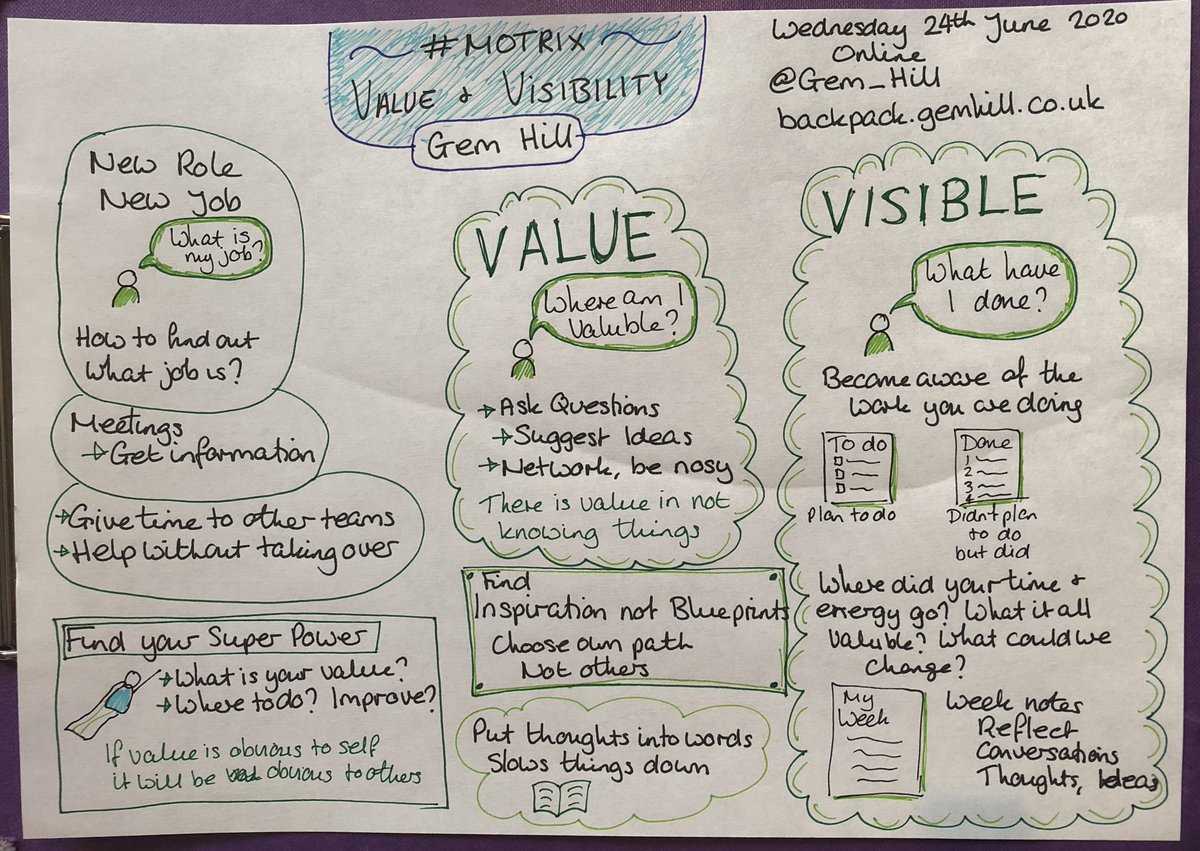 #MOTRIX
VALUE & VISIBILITY
Gem Hill
Wednesday 24th June 2020
Online
@Gem_Hill
backpack.gemhill.co.uk
New Role
New Job
What is
my job?
How to find out
what job is?
Meetings
→Get information
→Give time to other teams
→Help without taking over
Find your Super Power
→What is your value?
→Where to do? Improve?
If value is obvious to self
it will be obvious to others
VALUE
Where am I
valuble?
→Ask Questions
→Suggest Ideas
→Network, be nosy
There is value in not
knowing things
Find
Inspiration not Blueprints
Choose own path
Not others
Put thoughts into words
Slows things down
VISIBLE
What have
I done?
Become aware of the
work you are doing
To do
Plan to do
Done
1
2
3
4
Didn't plan
to do
but did
Where did your time &
energy go? What it all
valuble? What could we
change?
My
Week
Week notes
Reflect
Conversations
Thoughts, Ideas